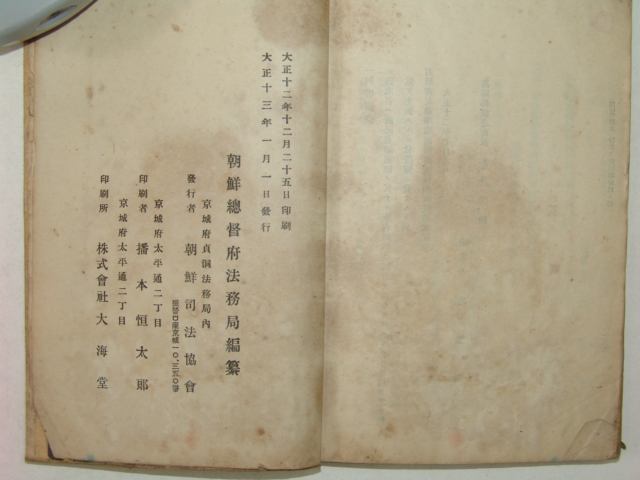 大正十二年十二月二十五日印刷
大正十三年一月一日發行
朝鮮總督府法務局編纂
京城府貞洞法務局內
發行者 朝鮮司法協會
振替口座京城一〇,三五〇番
京城府太平通二丁目
印刷者 播本恒太郎
京城府太平通二丁目
印刷所 株式會社大海堂